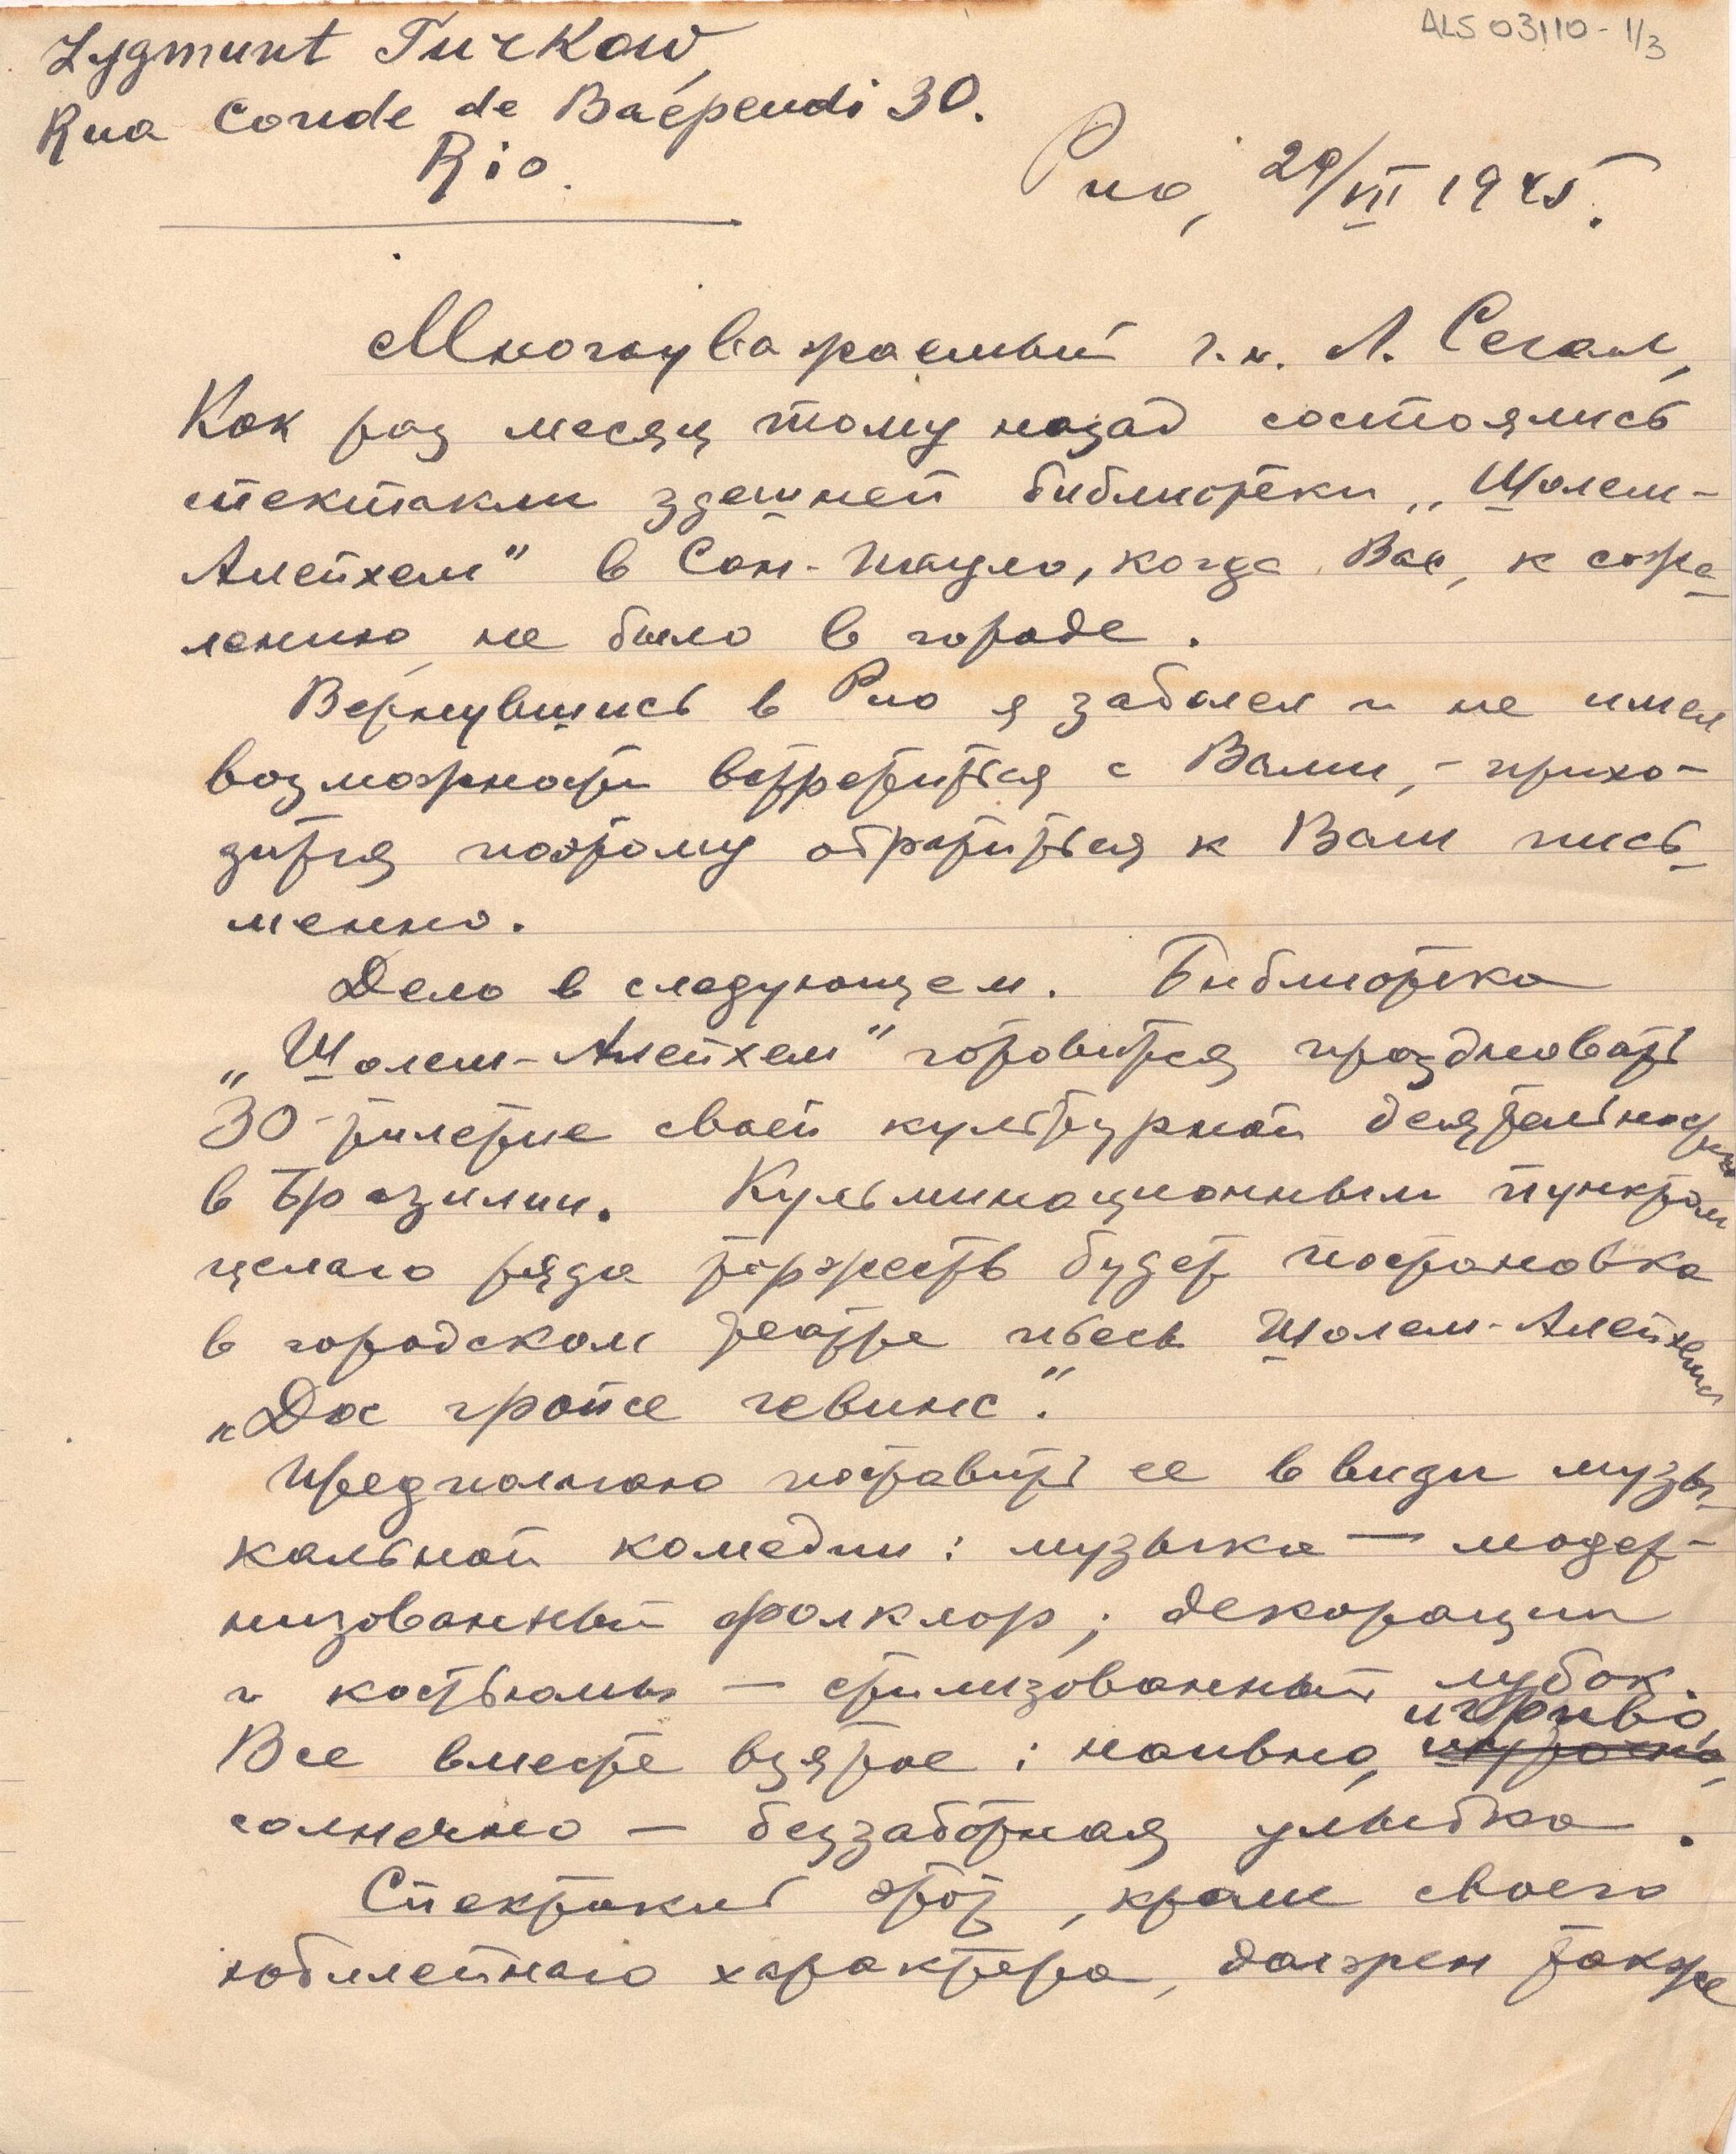 ALS 03110-1/3
Zygmunt Turkow,
Rua Conde de Baépendi 30.
Rio.
Рио, 29/VIII 1945.
Многоуважаемый г.н. Л. Сегал,
Как раз месяц тому назад состоялись
спектакли здешней библиотеки „Шолем-
Алейхем" в Сан-Пауло, когда Вас, к сожа-
лению, не было в городе.
Вернувшись в Рио я заболел и не имел
возможности встретиться с Вами, - прихо-
дится поэтому обратиться к Вам пись-
менно.
Дело в следующем. Библиотека
„Шолем-Алейхем" готовится праздновать
30-тилетие своей культурной деятельности
в Бразилии. Кульминационным пунктом
целаго ряда торжеств будет постановка
в городском театре пьесы Шолем-Алейхема
„Дос гройсе гевинс".
Предполагаю поставить ее в види музы-
кальной комедии: музыка — модер-
низованный фолклор; декорации
и костьюмы — стилизованный лубок.
Все вместе взятое: наивно, игриво,
солнечно — беззаботная улыбка.
Спектакль этот, кроме своего
юбилейнаго характера, должен также